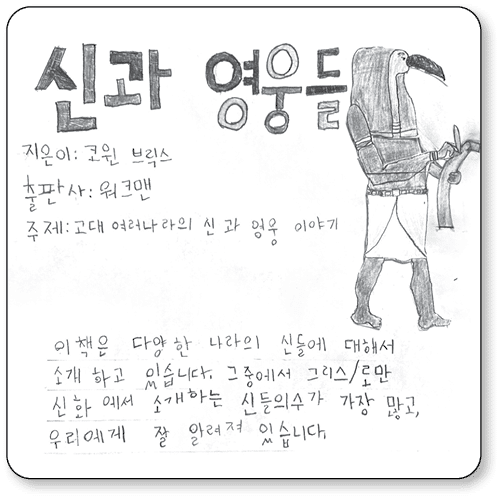 신과 영웅들
지은이: 코윈 브릭스
출판사: 워크맨
주제: 고대 여러나라의 신과 영웅 이야기
이 책은 다양한 나라의 신들에 대해서
소개 하고 있습니다. 그중에서 그리스/로만
신화 에서 소개하는 신들의수가 가장 많고,
우리에게 잘 알려져 있습니다.